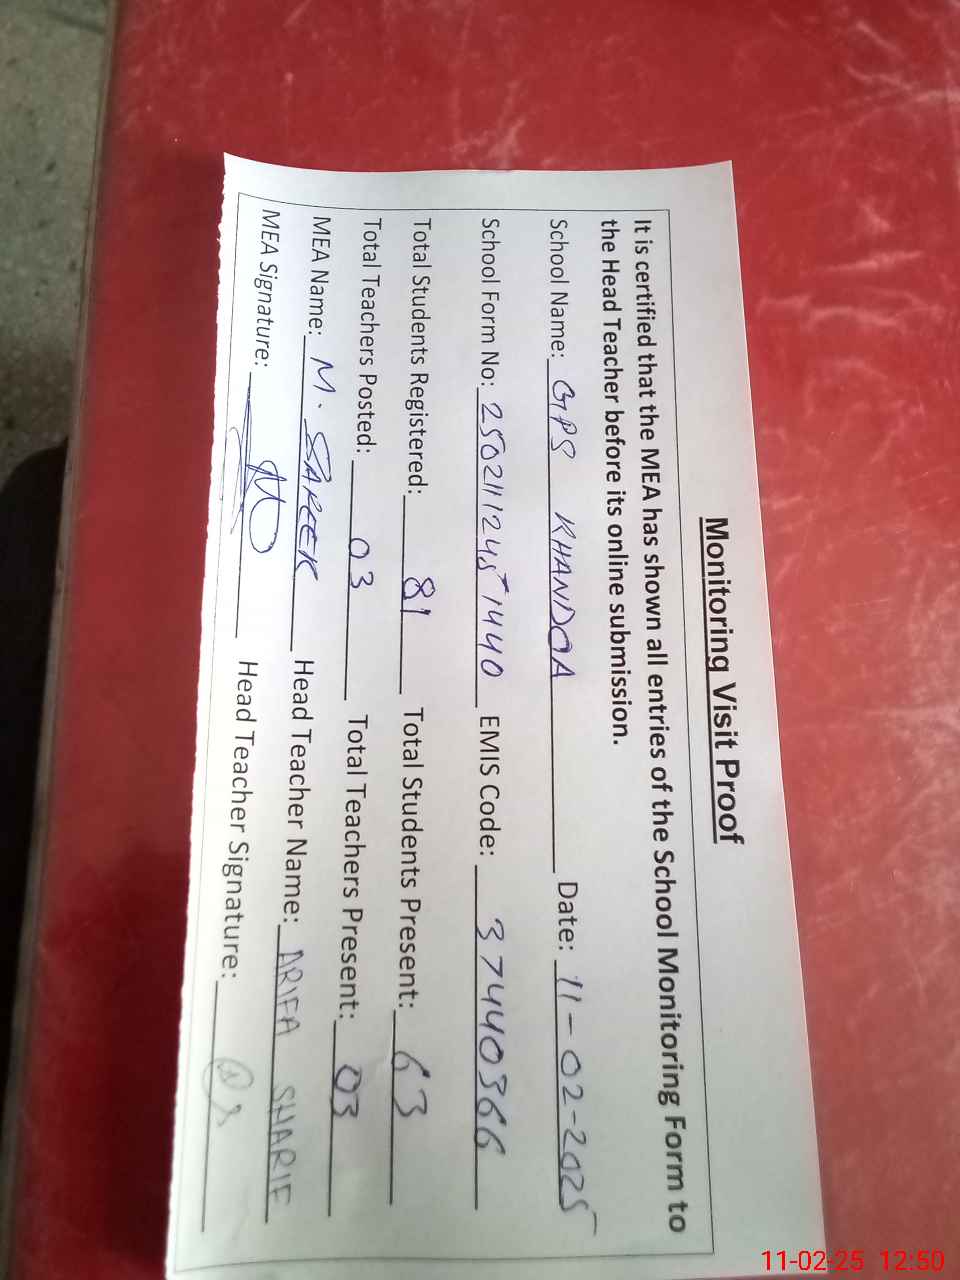 Monitoring Visit Proof
It is certified that the MEA has shown all entries of the School Monitoring Form to
the Head Teacher before its online submission.
School Name: GPS KHANDOA Date: 11-02-2025
School Form No: 25021112451440 EMIS Code: 37440366
Total Students Registered: 81 Total Students Present: 63
Total Teachers Posted: 03 Total Teachers Present: 03
MEA Name: M. SAREEK Head Teacher Name: ARIFA SHARIF
MEA Signature: Head Teacher Signature:
11-02-25 12:50